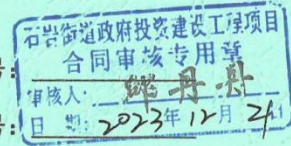 石岩街道政府投资建设工程项目
合同审核专用章
审核人:
日期:2023年12月21日